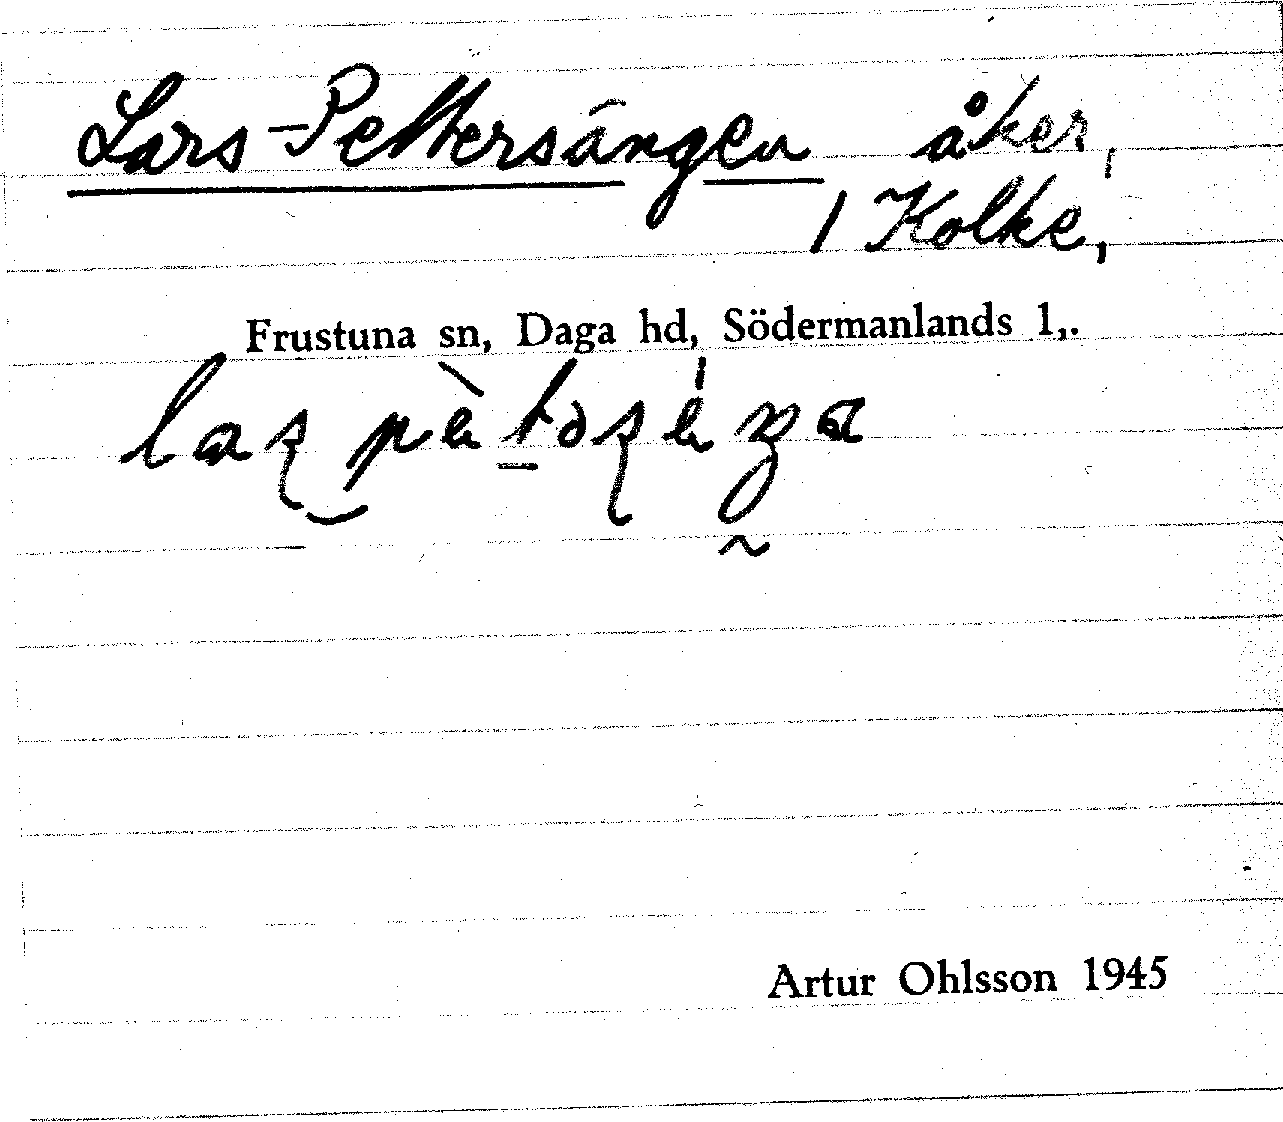 Lars-Pettersängen åker,
/ Kolke,
Frustuna sn, Daga hd, Södermanlands l,.
Artur Ohlsson 1945